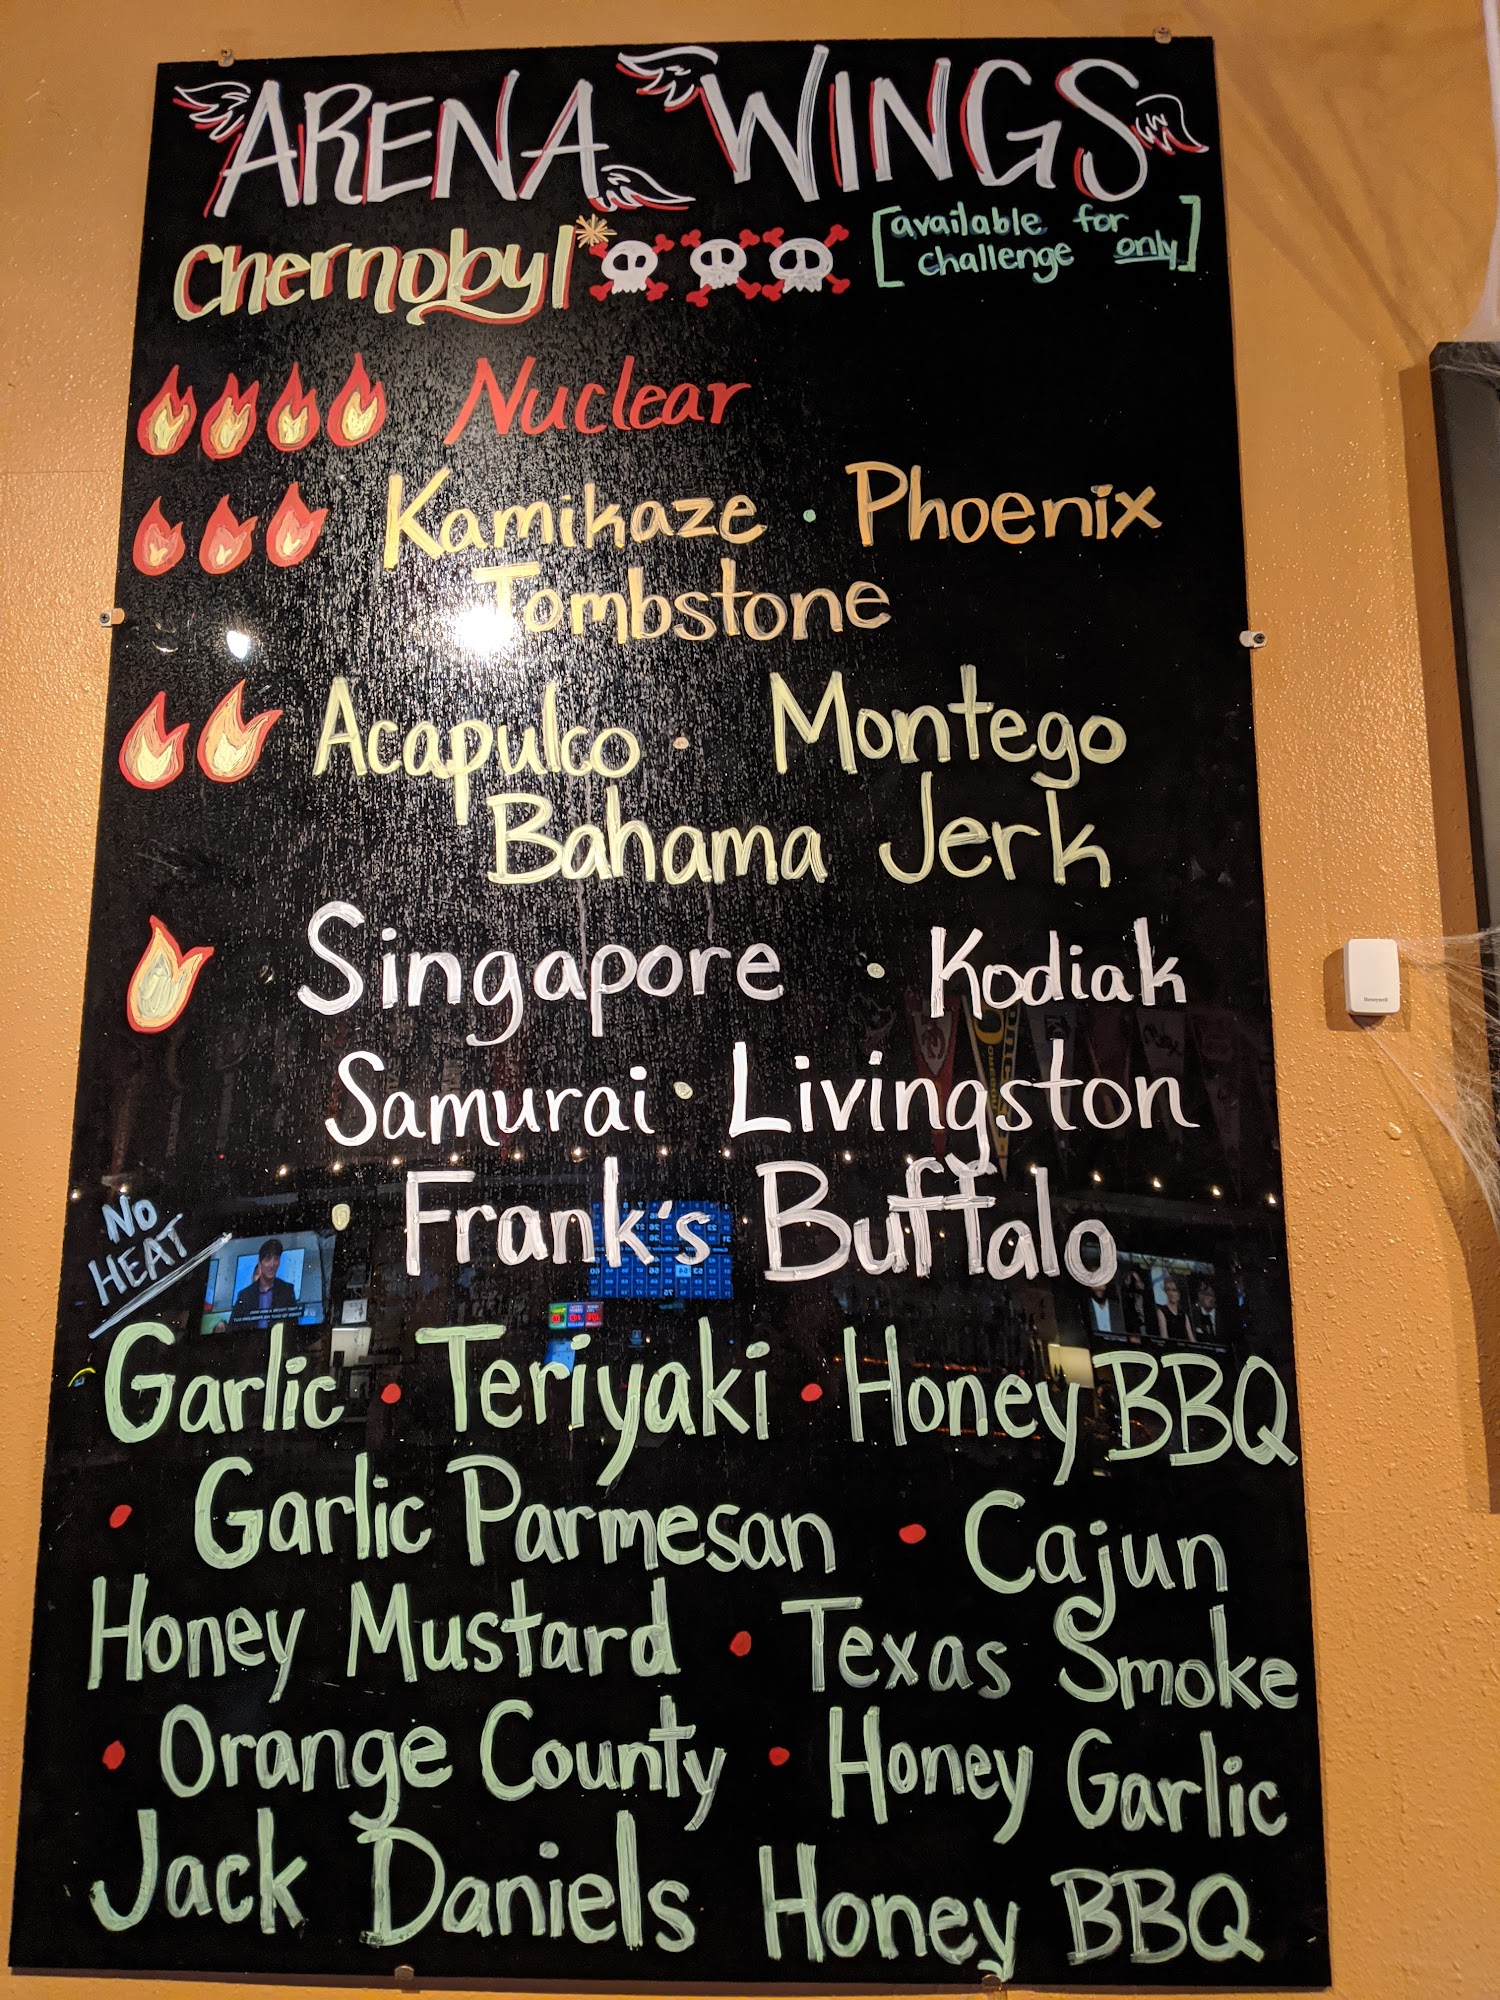 ARENA WINGS
Chernobyl* [available for
challenge only]
Nuclear
Kamikaze · Phoenix
Tombstone
Acapulco · Montego
Bahama Jerk
Singapore · Kodiak
Samurai · Livingston
· Frank's Buffalo
NO
HEAT
Garlic · Teriyaki · Honey BBQ
· Garlic Parmesan · Cajun
Honey Mustard · Texas Smoke
· Orange County · Honey Garlic
Jack Daniels Honey BBQ
Honeywell